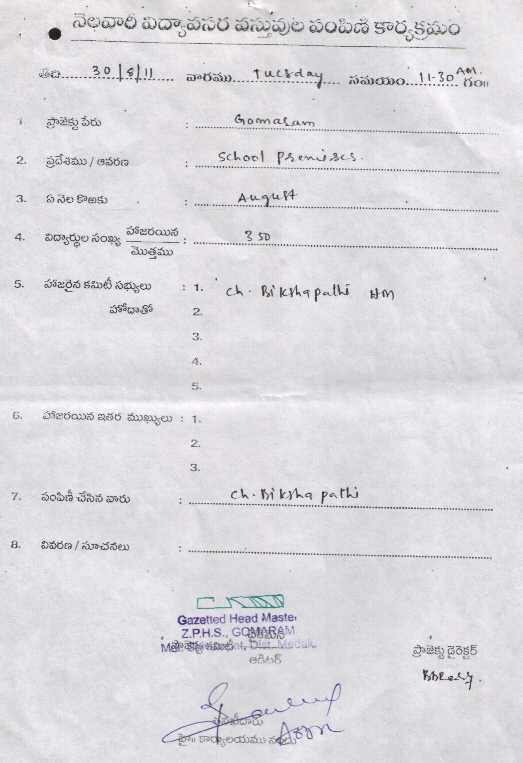 నెలవారి విద్యావసర వస్తువుల పంపిణి కార్యక్రమం
తేది 30/8/11 వారము Tuesday సమయం 11-30 AM. గం॥
1 ప్రాజెక్టు పేరు : Gomaram
2. ప్రదేశము / ఆవరణ : School Premises.
3. ఏ నెల కొఱకు : August
4. విద్యార్థుల సంఖ్య హాజరయిన / మొత్తము : 350
5. హాజరైన కమిటీ సభ్యులు : 1. Ch. Bikshapathi HM
హోదాతో 2.
3.
4.
5.
6. హాజరయిన ఇతర ముఖ్యులు : 1.
2.
3.
7. పంపిణీ చేసిన వారు : Ch. Bikshapathi
8. వివరణ / సూచనలు :
Gazetted Head Master
Z.P.H.S., GOMARAM
Dist. Medak.
ప్రాజెక్టు కమిటీ
ఆడిటర్
ప్రాజెక్టు డైరెక్టర్
కార్యాలయము